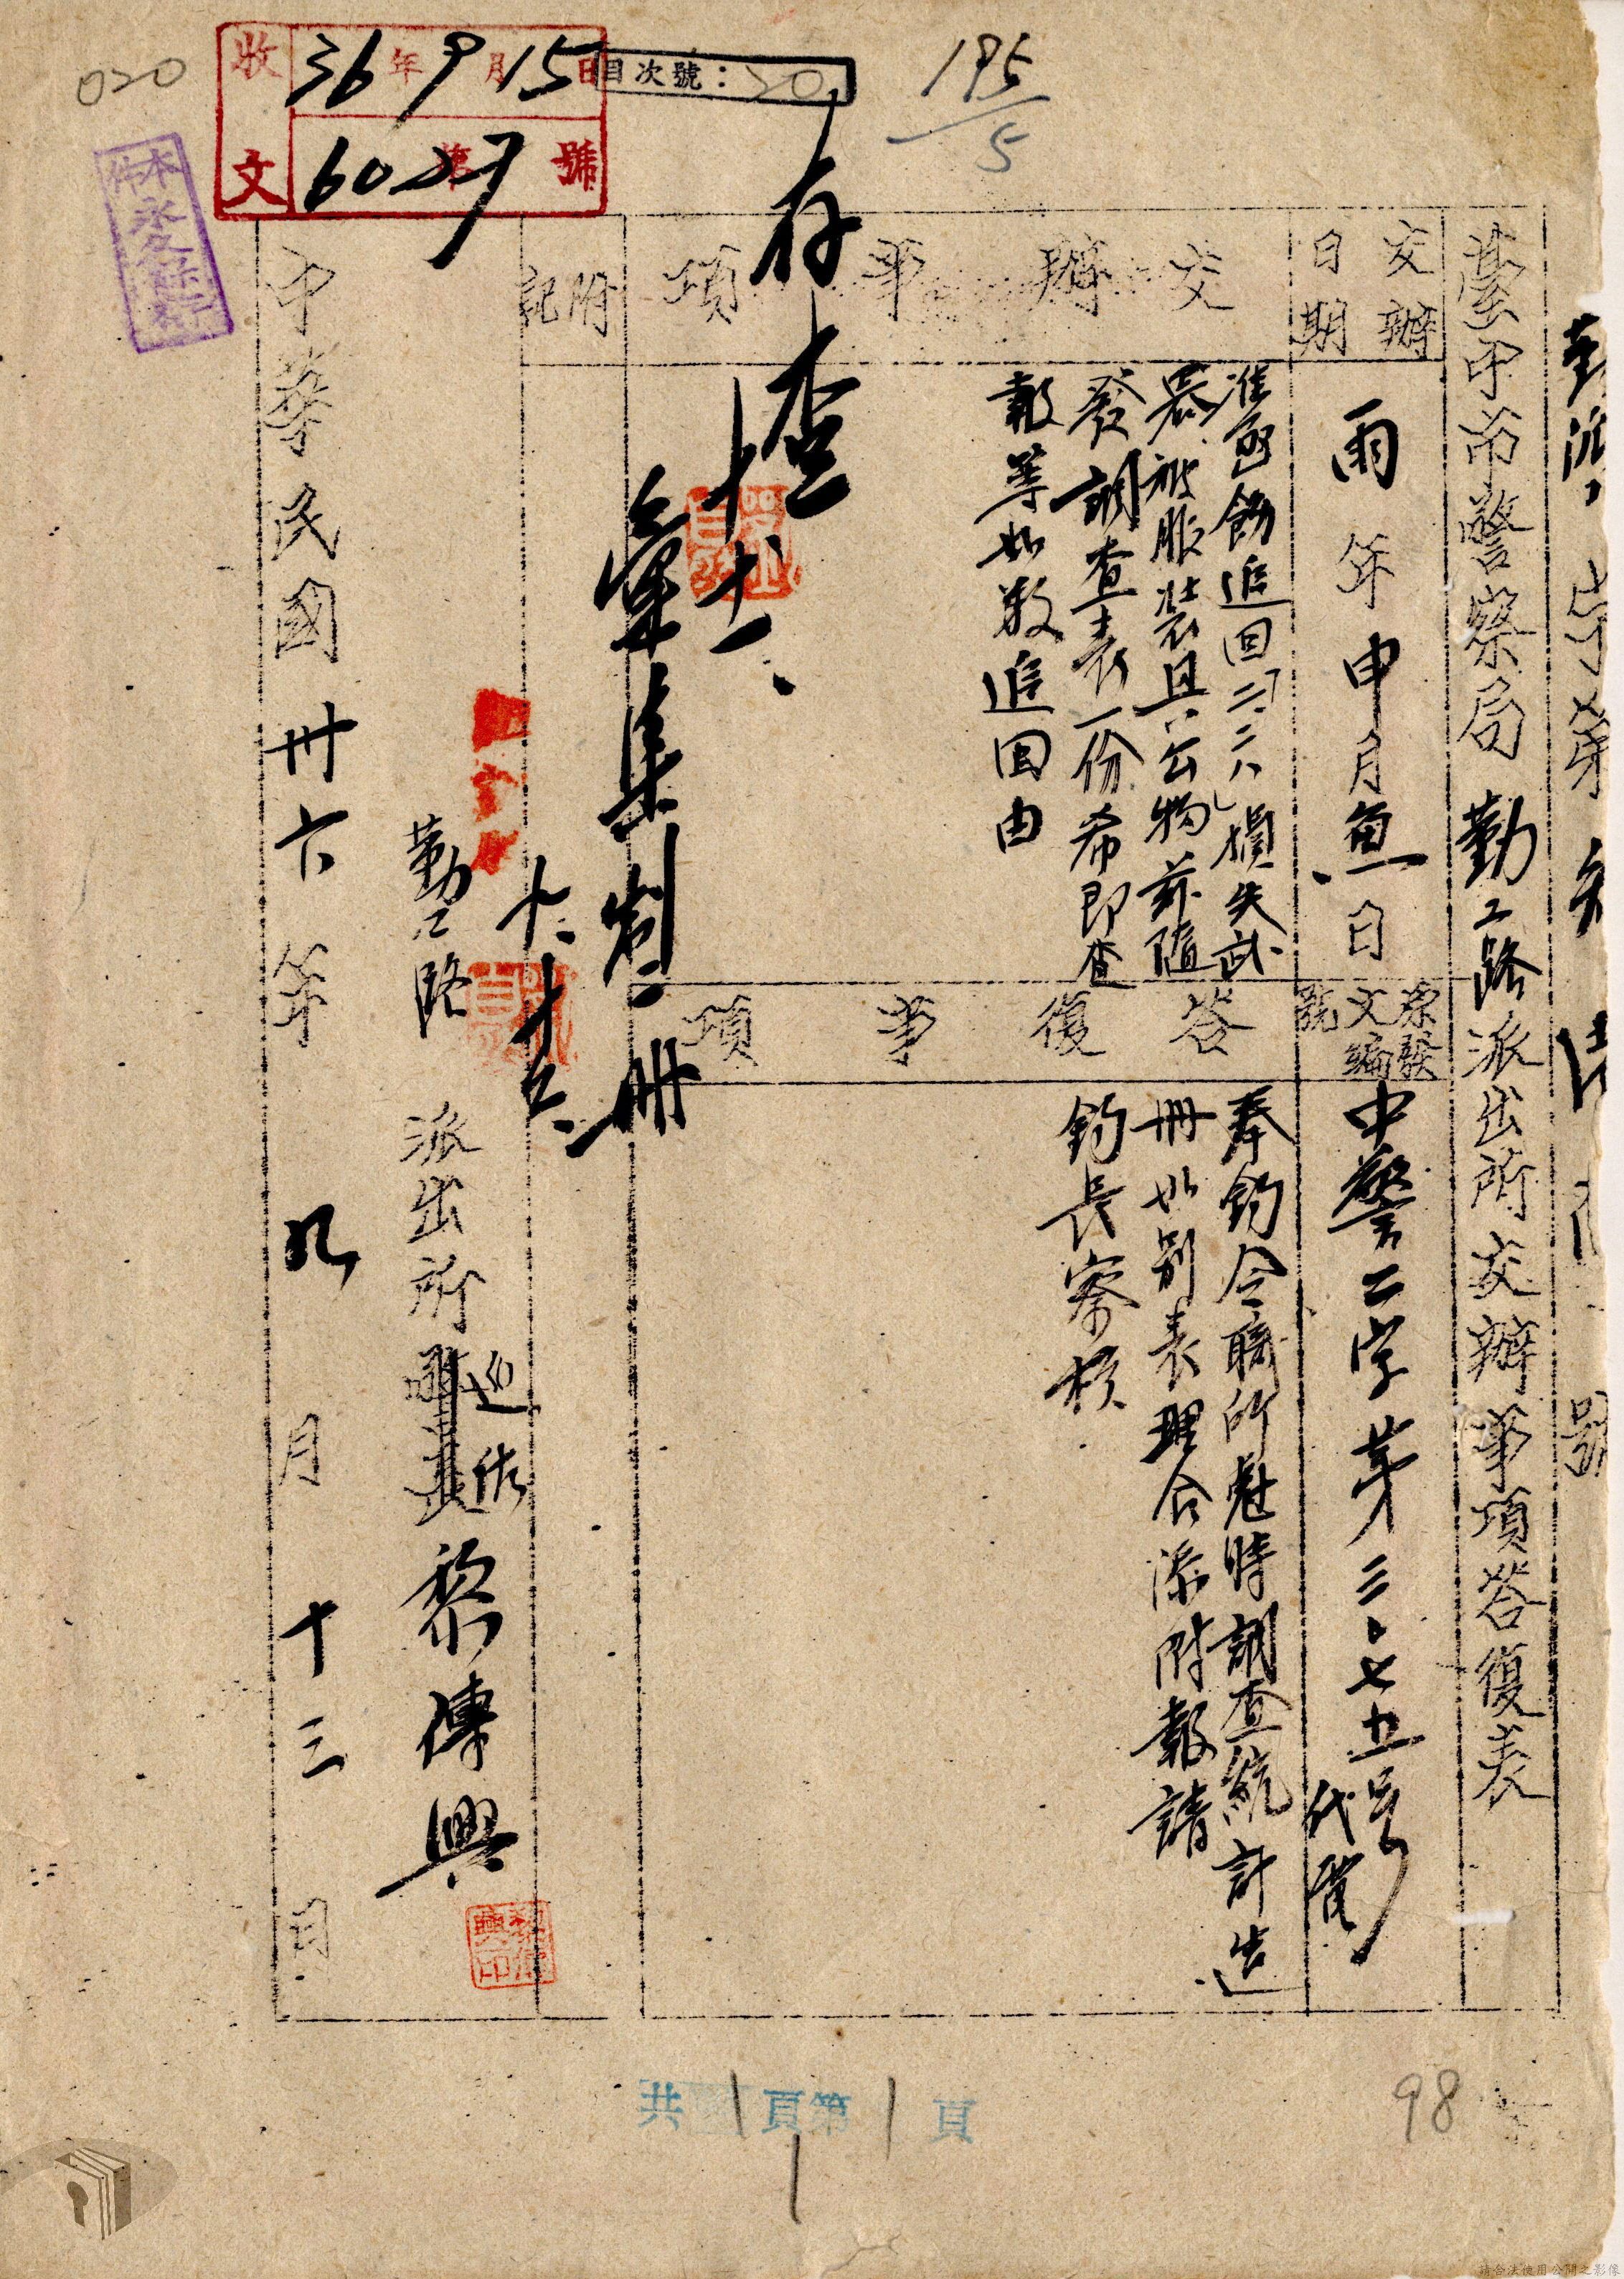 020
收文
36年9月15日
第6027號
目次號：20
195/5
臺中市警察局勤工路派出所交辦事項答復表
交辦日期
雨年申月魚日
原發文編號
中警二字第三〇七五號代電
交辦事項
准函飭追回「二二八」損失武
器被服裝具公物茲隨
發調查表一份希即查
報等如數追回由
答復事項
奉鈞令職所想時調查統計造
冊如別表理合添附報請
鈞長察核
附記
存查
十、十一、
彙集製一冊
勤工路派出所巡佐黎傳興
黎傳興印
中華民國卅六年九月十三日
共1頁第1頁
98
請合法使用公開之影像